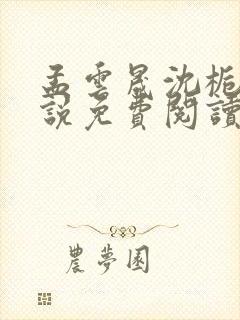 孟雲晟沈梔
說免費閱讀
農夢園